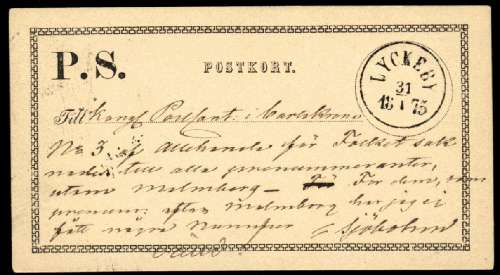 P.S.
POSTKORT.
LYCKEBY
31
18 1 75
Till Kongl Postkont. i Carlskrona
No 3 af Allehanda för Folket sak
nades till alla prenumeranter,
utom Malmberg — För dem, som
prenum. efter Malmberg har jag ej
fått några Nummer
Sjöholm